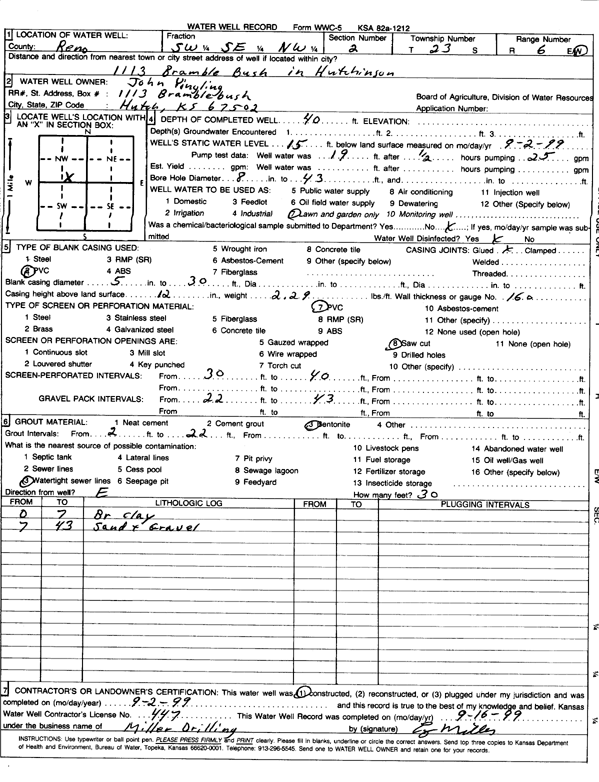 WATER WELL RECORD Form WWC-5 KSA 82a-1212
1 LOCATION OF WATER WELL: Fraction Section Number Township Number Range Number
County: Reno SW ¼ SE ¼ NW ¼ 2 T 23 S R 6 E/W
Distance and direction from nearest town or city street address of well if located within city?
1113 Bramble Bush in Hutchinson
2 WATER WELL OWNER: John Yingling
RR#, St. Address, Box # : 1113 Bramblebush Board of Agriculture, Division of Water Resources
City, State, ZIP Code : Hutch, KS 67502 Application Number:
3 LOCATE WELL'S LOCATION WITH AN "X" IN SECTION BOX:
N
NW NE
W X E
SW SE
S
1 Mile
4 DEPTH OF COMPLETED WELL 40 ft. ELEVATION:
Depth(s) Groundwater Encountered 1. ft. 2. ft. 3. ft.
WELL'S STATIC WATER LEVEL 15 ft. below land surface measured on mo/day/yr 9-2-99
Pump test data: Well water was 19 ft. after 1/2 hours pumping 25 gpm
Est. Yield gpm: Well water was ft. after hours pumping gpm
Bore Hole Diameter 8 in. to 43 ft., and in. to ft.
WELL WATER TO BE USED AS: 5 Public water supply 8 Air conditioning 11 Injection well
1 Domestic 3 Feedlot 6 Oil field water supply 9 Dewatering 12 Other (Specify below)
2 Irrigation 4 Industrial 7 Lawn and garden only 10 Monitoring well
Was a chemical/bacteriological sample submitted to Department? Yes No X ; If yes, mo/day/yr sample was submitted Water Well Disinfected? Yes X No
5 TYPE OF BLANK CASING USED: 5 Wrought iron 8 Concrete tile CASING JOINTS: Glued X Clamped
1 Steel 3 RMP (SR) 6 Asbestos-Cement 9 Other (specify below) Welded
2 PVC 4 ABS 7 Fiberglass Threaded
Blank casing diameter 5 in. to 30 ft., Dia in. to ft., Dia in. to ft.
Casing height above land surface 12 in., weight 2.29 lbs./ft. Wall thickness or gauge No. 160
TYPE OF SCREEN OR PERFORATION MATERIAL: 7 PVC 10 Asbestos-cement
1 Steel 3 Stainless steel 5 Fiberglass 8 RMP (SR) 11 Other (specify)
2 Brass 4 Galvanized steel 6 Concrete tile 9 ABS 12 None used (open hole)
SCREEN OR PERFORATION OPENINGS ARE: 5 Gauzed wrapped 8 Saw cut 11 None (open hole)
1 Continuous slot 3 Mill slot 6 Wire wrapped 9 Drilled holes
2 Louvered shutter 4 Key punched 7 Torch cut 10 Other (specify)
SCREEN-PERFORATED INTERVALS: From 30 ft. to 40 ft., From ft. to ft.
From ft. to ft., From ft. to ft.
GRAVEL PACK INTERVALS: From 22 ft. to 43 ft., From ft. to ft.
From ft. to ft., From ft. to ft.
6 GROUT MATERIAL: 1 Neat cement 2 Cement grout 3 Bentonite 4 Other
Grout Intervals: From 2 ft. to 22 ft., From ft. to ft., From ft. to ft.
What is the nearest source of possible contamination: 10 Livestock pens 14 Abandoned water well
1 Septic tank 4 Lateral lines 7 Pit privy 11 Fuel storage 15 Oil well/Gas well
2 Sewer lines 5 Cess pool 8 Sewage lagoon 12 Fertilizer storage 16 Other (specify below)
3 Watertight sewer lines 6 Seepage pit 9 Feedyard 13 Insecticide storage
Direction from well? E How many feet? 30
FROM TO LITHOLOGIC LOG FROM TO PLUGGING INTERVALS
0 7 Br clay
7 43 Sand + Gravel
7 CONTRACTOR'S OR LANDOWNER'S CERTIFICATION: This water well was (1) constructed, (2) reconstructed, or (3) plugged under my jurisdiction and was
completed on (mo/day/year) 9-2-99 and this record is true to the best of my knowledge and belief. Kansas
Water Well Contractor's License No. 447 This Water Well Record was completed on (mo/day/yr) 9-16-99
under the business name of Miller Drilling by (signature)
INSTRUCTIONS: Use typewriter or ball point pen. PLEASE PRESS FIRMLY and PRINT clearly. Please fill in blanks, underline or circle the correct answers. Send top three copies to Kansas Department
of Health and Environment, Bureau of Water, Topeka, Kansas 66620-0001. Telephone: 913-296-5545. Send one to WATER WELL OWNER and retain one for your records.